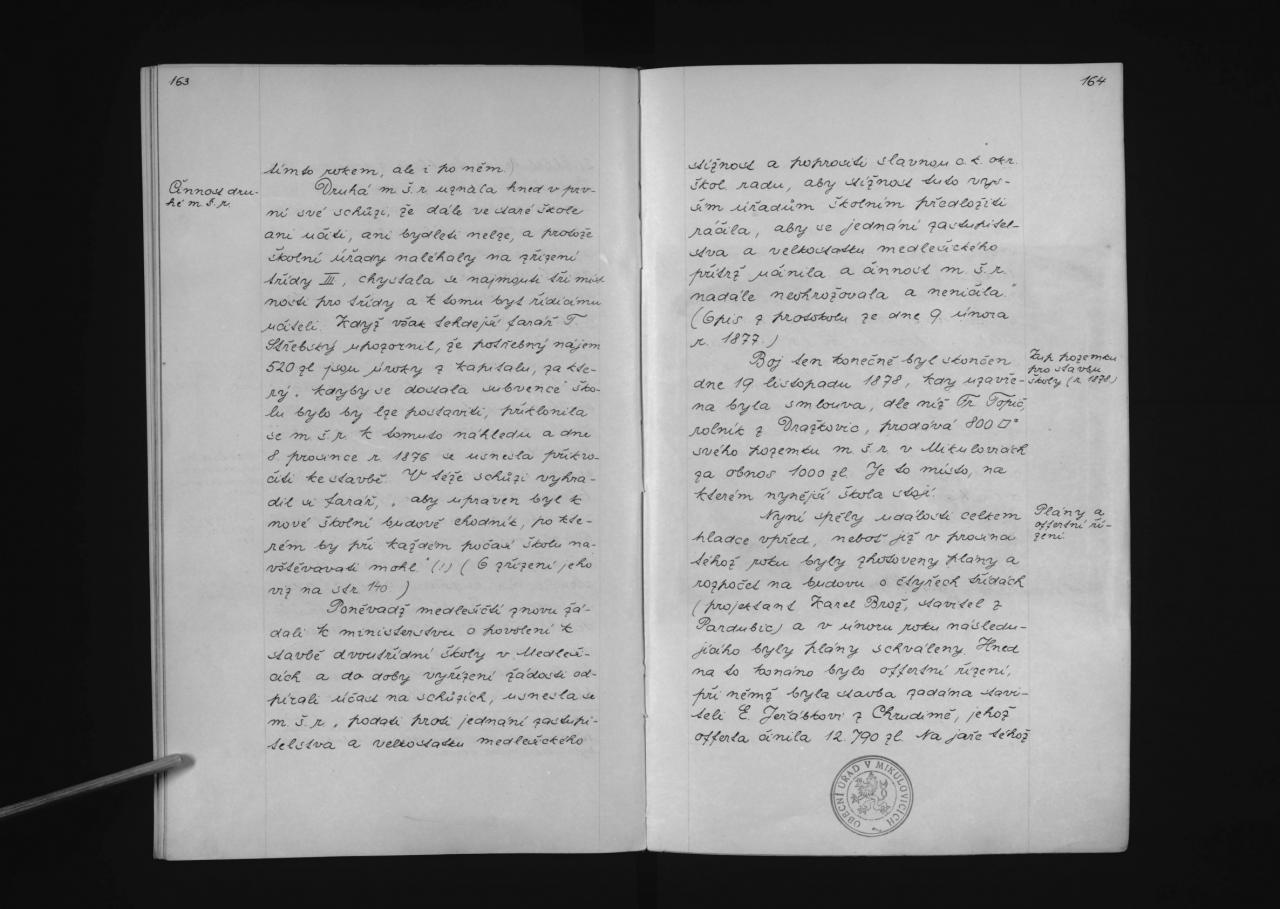 163
tímto rokem, ale i po něm.)
Činnost dru-
hé m. š. r.
Druhá m. š. r. uznala hned v prv-
ní své schůzi, že dále ve staré škole
ani učiti, ani bydleti nelze, a protože
školní úřady naléhaly na zřízení
třídy III, chystala se najmouti tři míst
nosti pro třídy a k tomu byt řídícímu
učiteli. Když však tehdejší farář T.
Střebský upozornil, že potřebný nájem
520 zl jsou úroky z kapitálu, za kte-
rý, kdyby se dostala subvence ško-
lu bylo by lze postaviti, přiklonila
se m. š. r. k tomuto náhledu a dne
8 prosince r. 1876 se usnesla přikro-
čiti ke stavbě. V téže schůzi vyhra-
dil si farář, „aby upraven byl k
nové školní budově chodník, po kte-
rém by při každém počasí školu na-
vštěvovati mohl" (!) (O zřízení jeho
viz na str. 140)
Poněvadž medlešičtí znovu žá-
dali k ministerstvu o povolení k
stavbě dvoutřídní školy v Medleši-
cích a do doby vyřízení žádosti od-
pírali účast na schůzích, usnesla se
m. š. r. „podati proti jednání zastupi-
telstva a velkostatku medlešického
164
stížnost a poprositi slavnou c. k. okr.
škol. radu, aby stížnost tuto vyš-
ším úřadům školním předložiti
ráčila, aby se jednání zastupitel-
stva a velkostatku medlešického
přítrž učinila a činnost m. š. r.
nadále neohrožovala a neničila."
(Opis z protokolu ze dne 9. února
r. 1877.)
Boj ten konečně byl skončen
dne 19 listopadu 1878, kdy uzavře-
na byla smlouva, dle níž Fr. Topič,
rolník z Dražkovic, prodává 800 □°
svého pozemku m. š. r. v Mikulovicích
za obnos 1000 zl. Je to místo, na
kterém nynější škola stojí.
Zup. pozemku
pro stavbu
školy (r. 1878)
Nyní spěly události celkem
hladce vpřed, neboť již v prosinci
téhož roku byly zhotoveny plány a
rozpočet na budovu o čtyřech třídách
(projektant Karel Brož, stavitel z
Pardubic) a v únoru roku následu-
jícího byly plány schváleny. Hned
na to konáno bylo offertní řízení,
při němž byla stavba zadána stavi-
teli E. Jeřábkovi z Chrudimě, jehož
offerta činila 12.790 zl. Na jaře téhož
Plány a
offertní ří-
zení.
OBECNÍ ÚŘAD V MIKULOVICÍCH